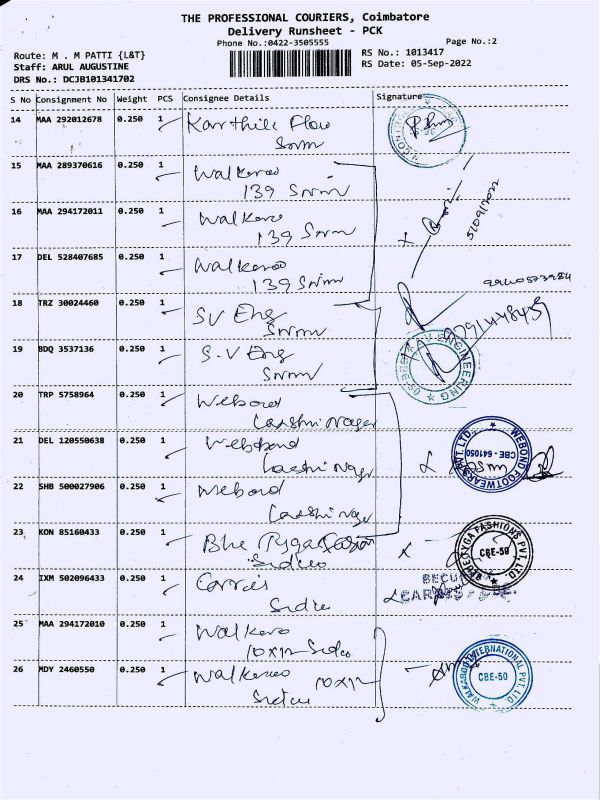 THE PROFESSIONAL COURIERS, Coimbatore
Delivery Runsheet - PCK
Phone No.:0422-3505555
Page No.:2
Route: M . M PATTI {L&T}
RS No.: 1013417
Staff: ARUL AUGUSTINE
RS Date: 05-Sep-2022
DRS No.: DCJB101341702
S No Consignment No Weight PCS Consignee Details Signature
14 MAA 292012678 0.250 1 Karthik Flow
15 MAA 289370616 0.250 1 Walkaroo
139
16 MAA 294172011 0.250 1 Walkaroo
139
17 DEL 528407685 0.250 1 Walkaroo
139
18 TRZ 30024460 0.250 1 SV Eng
19 BDQ 3537136 0.250 1 S.V Eng
ENGINEERING
20 TRP 5758964 0.250 1 Webond
Lakshmi Nager
21 DEL 120550638 0.250 1 Webond
Lakshmi Nager
WEBOND FOOTWEARS PVT.LTD.,
CBE - 641050
22 SHB 500027906 0.250 1 Webond
Lakshmi Nager
23 KON 85160433 0.250 1
Sidco
FASHIONS PVT. LTD.
CBE-50
24 IXM 502096433 0.250 1
Sidco
25 MAA 294172010 0.250 1 Walkaroo
10x12 Sidco
26 MDY 2460550 0.250 1 Walkaroo 10x12
Sidco
WALKAROO INTERNATIONAL PVT LTD.
CBE-50